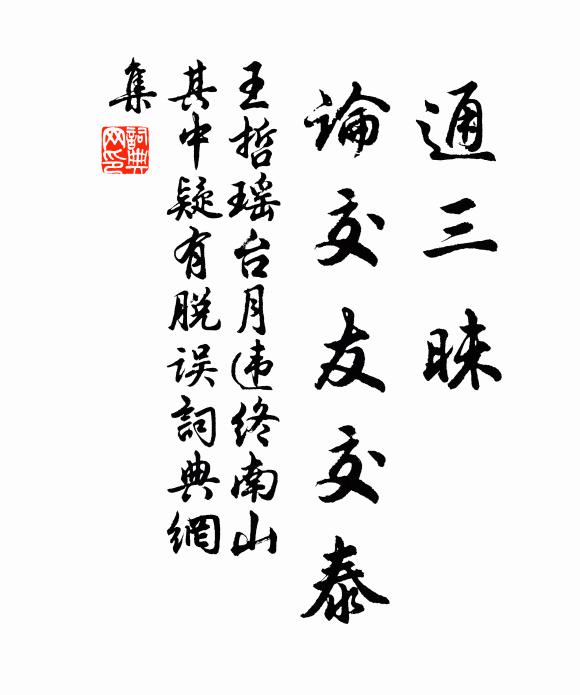 通三昧
論交友交泰
王哲瑶台月违终南山
其中疑有脫误詞典網
集
詞典网印